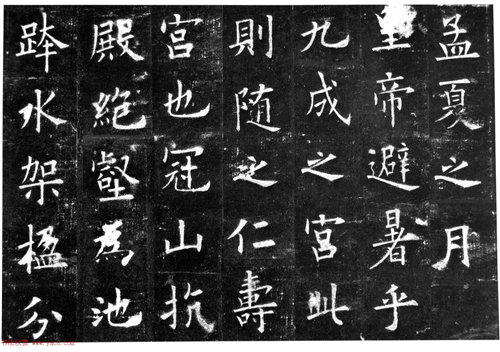 孟夏之月
皇帝避暑乎
九成之宮此
則随之仁壽
宮也冠山抗
殿絕壑為池
跨水架楹分